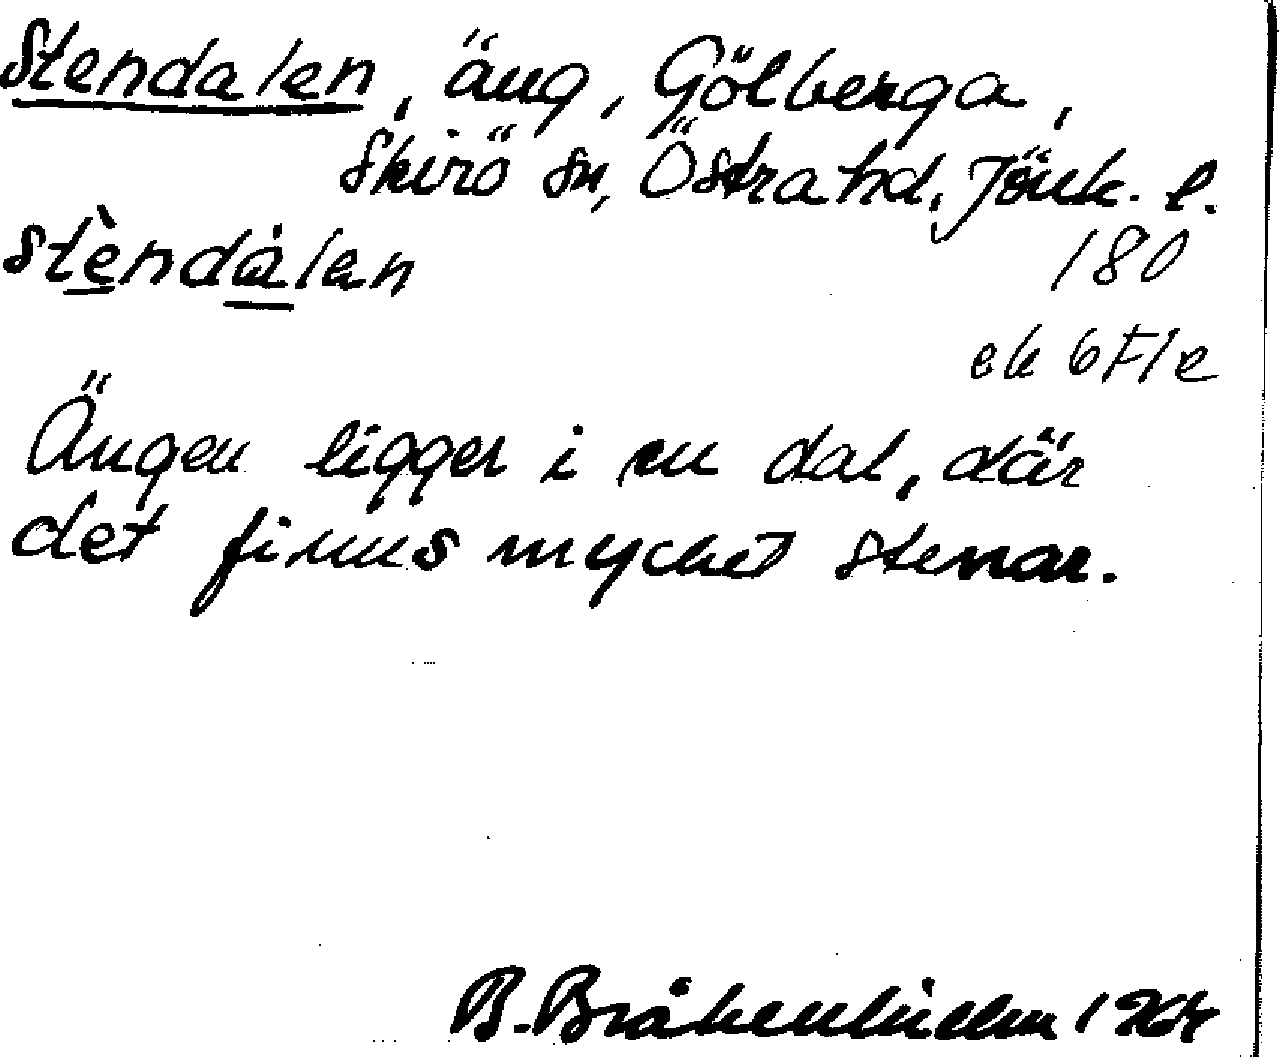 Stendalen, äng, Gölberga,
Skirö sn, Östra hd, Jönk. l.
stèndàlen
180
ek 6F1e
Ängen ligger i en dal, där
det finns mycket stenar.
B. Bråkenhielm 1964